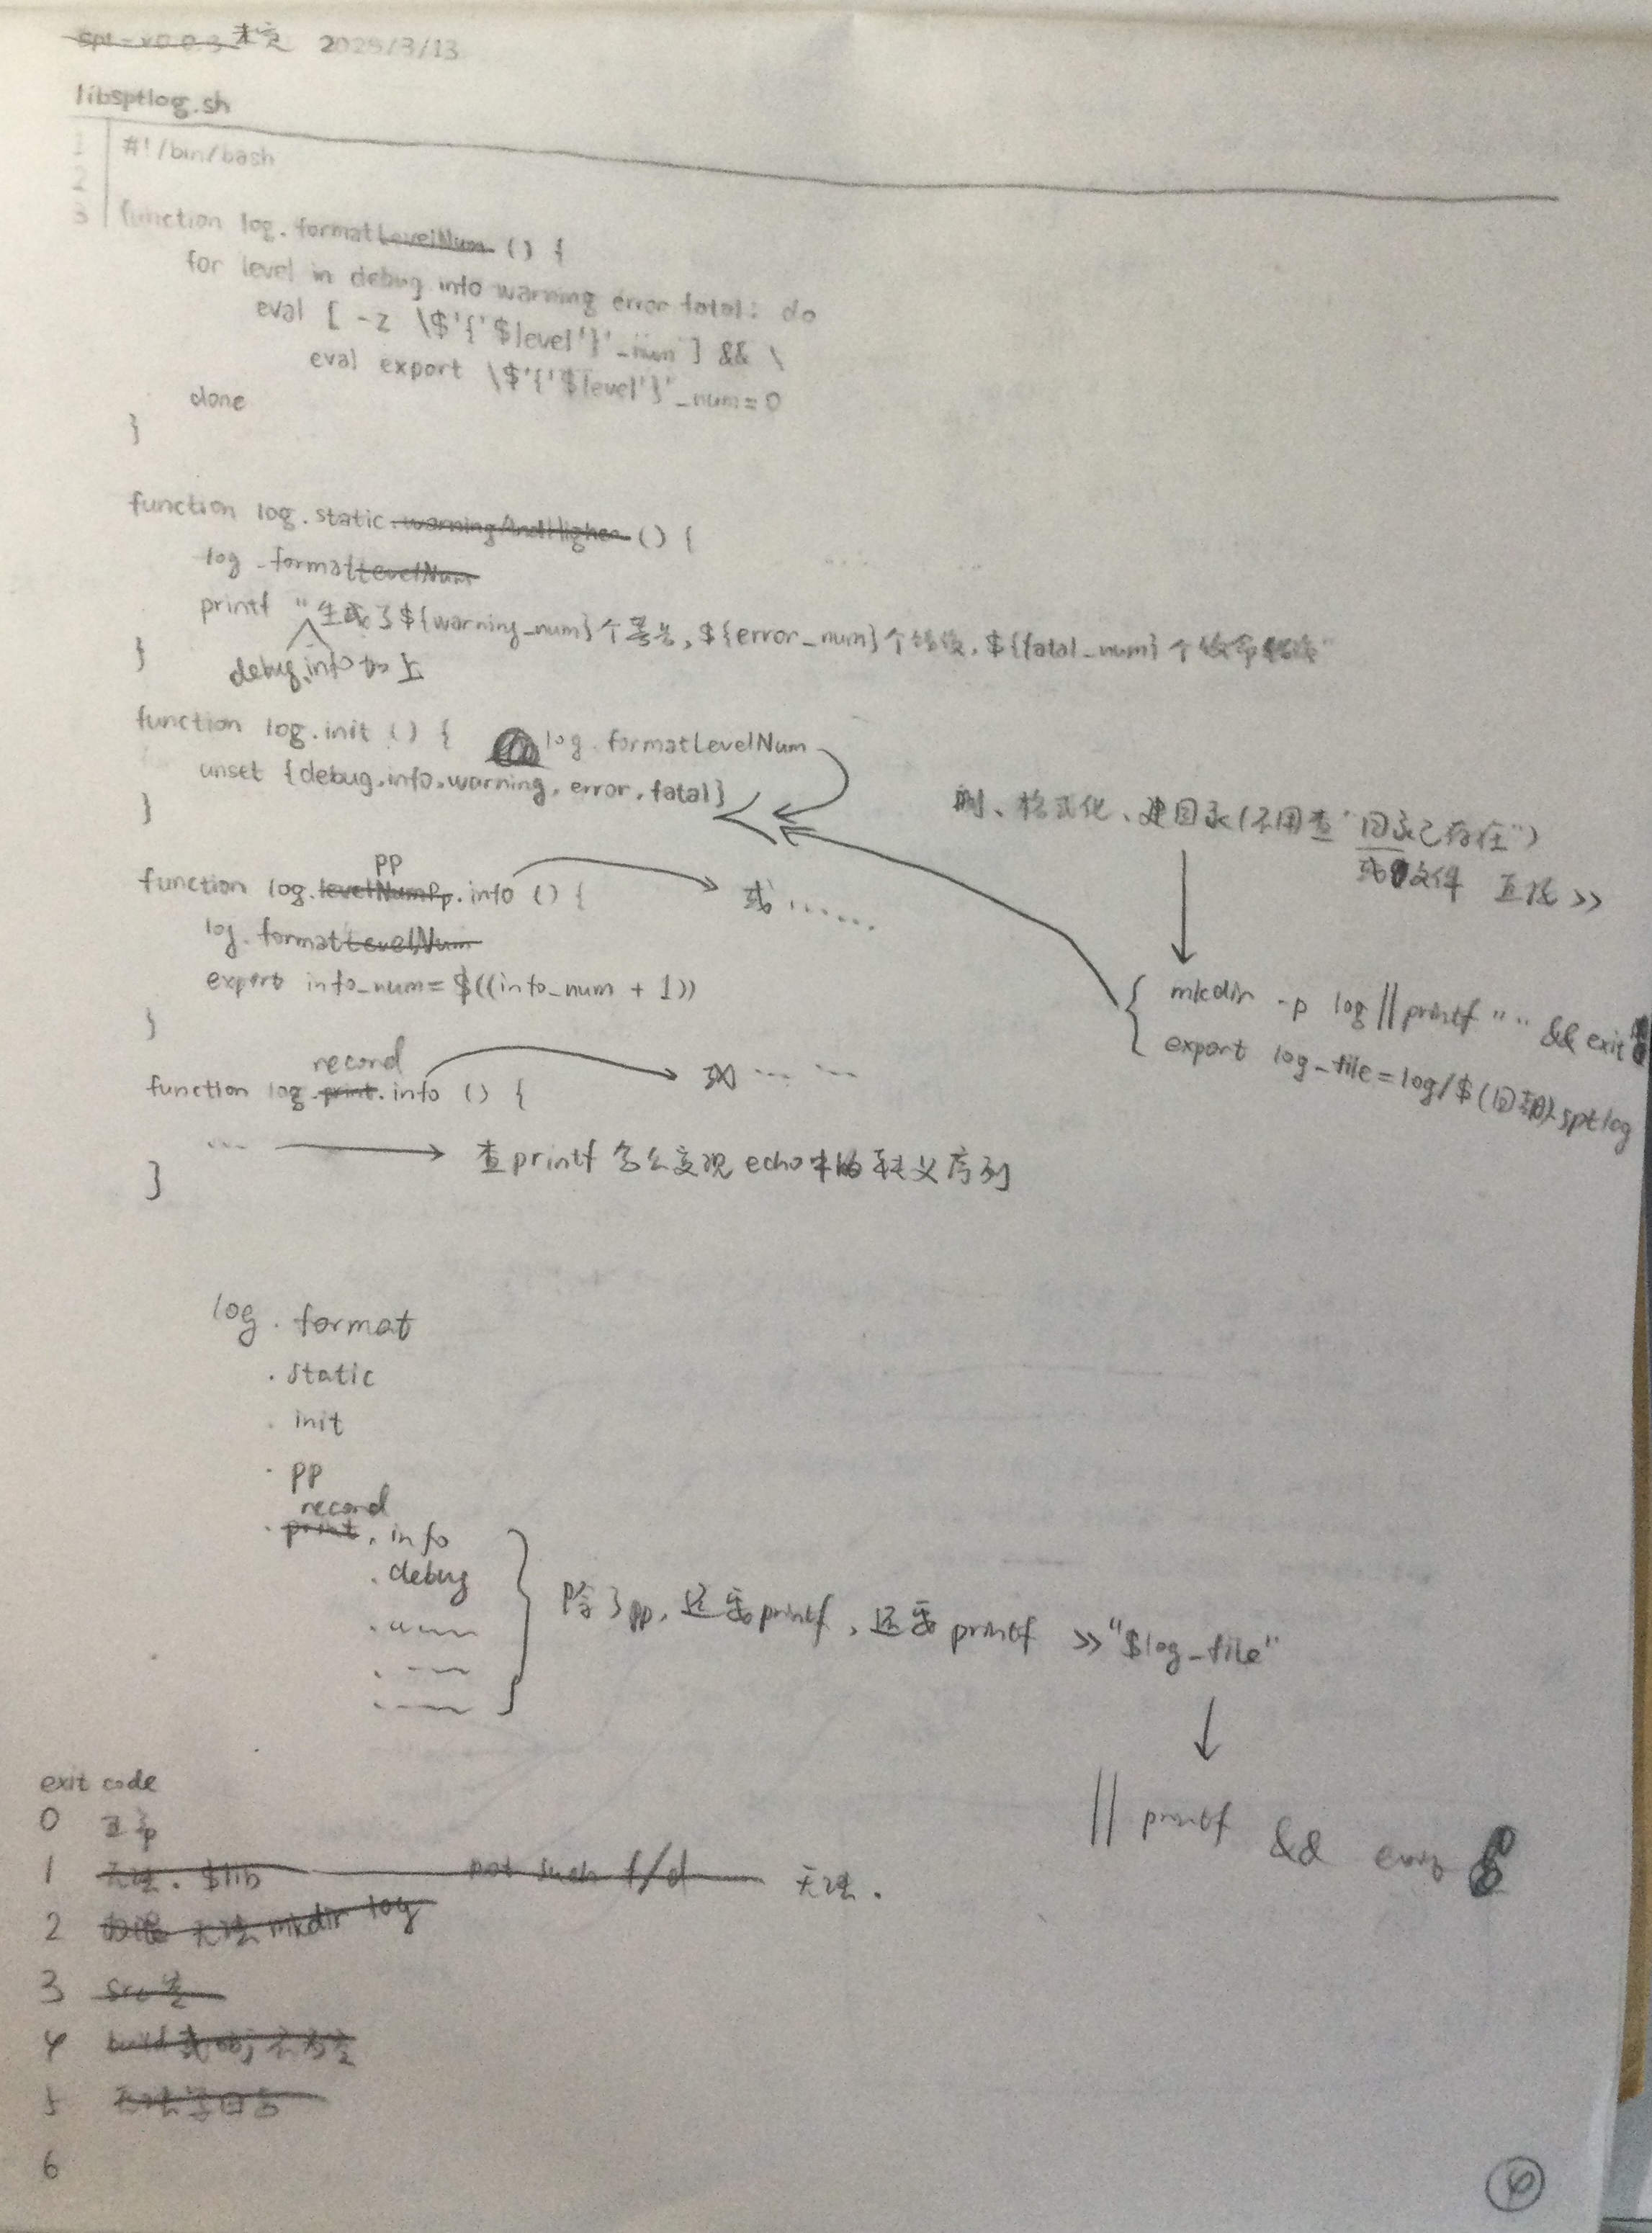 spt-v0.0.3 未定 2025/3/13
libsptlog.sh
1 #!/bin/bash
2
3 function log.formatLevelNum () {
for level in debug info warning error fatal; do
eval [ -z \$'{'$level'}'_num ] && \
eval export \$'{'$level'}'_num=0
done
}
function log.static.warningAndHigher () {
log.formatLevelNum
printf "生成了${warning_num}个警告,${error_num}个错误,${fatal_num}个致命错误"
debug,info如上
}
function log.init () {
log.formatLevelNum
unset {debug,info,warning,error,fatal}
}
删、格式化、建目录(不用查"目录已存在")
或 文件 直接 >>
pp
function log.levelNumPp.info () {
或……
log.formatLevelNum
export info_num=$((info_num + 1))
}
mkdir -p log || printf "" && exit
export log_file=log/$(日期).sptlog
record
function log.print.info () {
或…… 
… 查printf怎么实现echo中的转义序列
}
log.format
.static
.init
.pp
record
.print.info
.debug
除了pp,还要printf,还要printf >>"$log_file"
|| printf &&
exit code
0 正常
1 无法. $lib not such f/d 无法.
2 无法mkdir log
3 src空
4 build 不为空
5 无法写日志
6
4